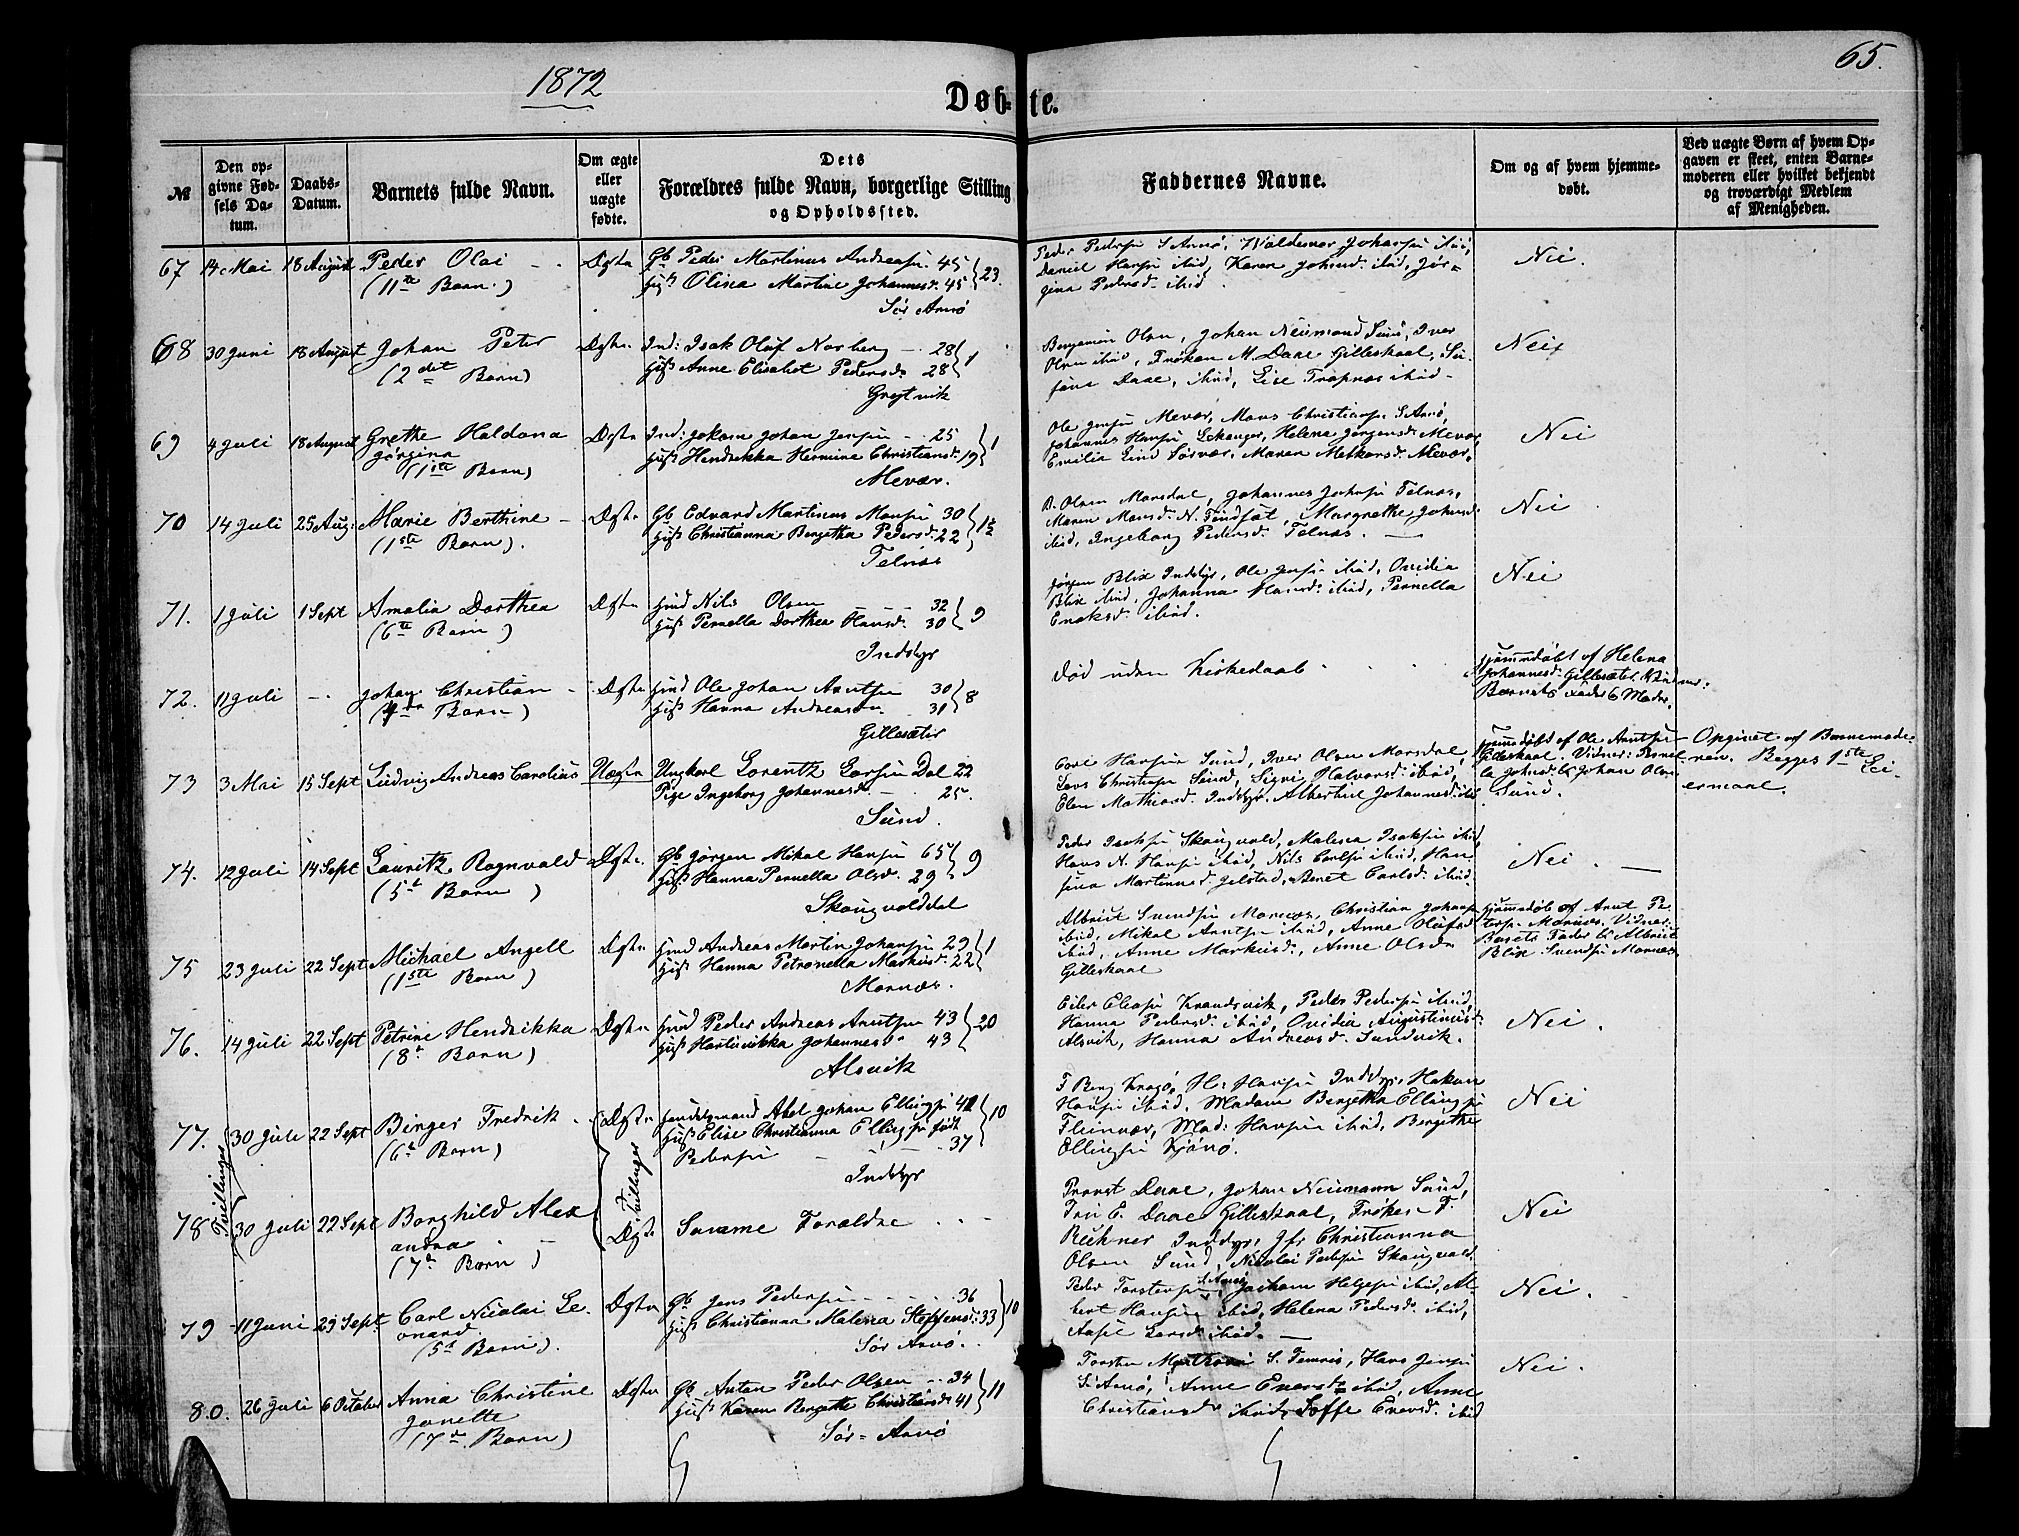 1872
65.
Døb-te.
№
Den op-
givne Fød-
sels Da-
tum.
Daabs-
Datum.
Barnets fulde Navn.
Om ægte
eller
uægte
fødte.
Dets
Forældres fulde Navn, borgerlige Stilling
og Opholdssted.
Faddernes Navne.
Om og af hvem hjemme-
døbt.
Ved uægte Børn af hvem Op-
gaven er skeet, enten Barne-
moderen eller hvilket bekjendt
og troværdigt Medlem
af Menigheden.
67 14 Mai 18 August Peder Olai Ægte Gb Peder Martinus Andreasen 45
(11te Barn.) Hust Olina Martine Johannesd. 45 23.
Sør Arnø
Peder Pedersen S Arnø, Waldemar Johansen ibid,
Daniel Hansen ibid, Karen Johnsd. ibid, Jør-
gina Pedersd. ibid.
Nei.
68 30 Juni 18 August Johan Peter Ægte Ind: Isak Oluf Norberg 28
(2det Barn) Hust Anne Elisabet Pedersd. 28 1
Grøtvik
Benjamin Olsen, Johan Neumand Sund, Iver
Olsen ibid, Frøken M. Daae Gilleskaal, Su-
sane Daae, ibid, Lise Trapnæs ibid.
Nei
69 4 Juli 18 August Grethe Haldona Ægte Ind: Jokom Johan Jensen 25
Jørgina Hust Hendrikka Hermine Christiansd. 19 1
(1ste Barn) Mevær.
Ole Jensen Mevær, Mons Christiansen S Arnø,
Johannes Hansen Eskanger, Helena Jørgensd. Mevær,
Emilie Lind Sørvær, Maren Metkorsd. Mevær.
Nei
70 14 Juli 25 Aug: Marie Berthine Ægte Gb Edvard Martinus Monsen 30
(1ste Barn). Hust Christianna Bergetha Pedersd. 22 1½
Telnæs
B. Olsen Marsdal, Johannes Jochsen Telnæs,
Maren Monsd. N. Fondsæt, Margrethe Johnsd.
ibid, Ingeborg Pedersd. Telnæs.
Nei
71. 1 Juli 1 Sept Amalia Dorthea Ægte Husmd Nils Olsen 32
(6te Barn) Hust Pernella Dorthea Hansd. 30 9
Inddyr
Jørgen Blix Inddyr, Ole Jensen ibid, Ovidia
Blix ibid, Johanna Hansd. ibid, Pernella
Enoksd. ibid.
Nei
72. 11 Juli Johan Christian Ægte Husmd Ole Johan Arntsen 30
(4de Barn) Hust Hanna Andreasdr. 31 8
Gillesætir
Død uden Kirkedaab
Hjemmedøbt af Helena
Johannesd. Gillesætet. Vidner:
Barnets Fader & Moder.
73 3 Mai 15 Sept Ludvig Andreas Carolius Uægte Ungkarl Lorentz Larsen Dal 22
Pige Ingeborg Johannesd. 25.
Sund.
Carl Hansen Sund, Iver Olsen Marsdal,
Lars Christensen Sund, Sigri Halvorsd. ibid,
Elen Mathiasd. Inddyr. Albertine Johannesd. ibid
Hjemmedøbt af Ole Arntsen
Gilleskaal. Vidner: Pernel-
la Johnsd. & Johan Olsen
Sund.
Opgivet af Barnemode-
ren. Begges 1ste Lei-
ermaal.
74. 12 Juli 14 Sept Lauritz Rognvald Ægte Gb Jørgen Mikal Hansen 65
(5te Barn) Hust Hanna Pernella Olsd. 29 9
Skaugvolddal
Peder Isaksen Skaugvold, Malena Isaksen ibid,
Hans N. Hansen ibid, Nils Carlsen ibid, Han-
sina Martinusd. Gilstad, Benet Carlsd. ibid.
Nei.
75 23 Juli 22 Sept Michael Angell Ægte Husmd Andreas Martin Johansen 29
(1ste Barn) Hust Hanna Petronella Markusd. 22 1
Mornæs.
Albrict Svendsen Mornæs, Christian Johansen
ibid, Mikel Arntsen ibid, Anne Olufsd.
ibid, Anne Markusd., Anne Olsdr
Gilleskaal
Hjemmedøbt af Arnt Pe-
tersen Mornæs. Vidner:
Barnets Fader & Albrict
Blix Svendsen Mornæs.
76. 14 Juli 22 Sept Petrine Hendrikka Ægte Husmd Peder Andreas Arntsen 43
(8de Barn) Hust Hartvikka Johannesd. 43 20
Alsvik
Eiler Eliasen Krandsvik, Peder Pedersen ibid,
Hanna Pedersd. ibid, Ovidia Augustinusd.
Alsvik, Hanna Andreasd. Sundvik.
Nei.
77. 30 Juli 22 Sept Birger Fredrik Ægte Handelsmand Abel Johan Ellingsen 42
(6te Barn) Hust Elise Christianna Ellingsen født
Pedersen 37 10
Inddyr
F Berg Kragø, H. Hansen Inddyr, Hakon
Hansen ibid. Madam Bergetha Ellingsen
Fleinvær, Mad: Hansen ibid, Bergithe
Ellingsen Kjønø.
Nei
Tvillinger Tvillinger
78 30 Juli 22 Sept Borghild Alex Ægte Samme Forældre
andra
(7de Barn)
Provst Daae, Johan Neumann Sund,
Fru E. Daae Gilleskaal, Frøken F.
Buchner Inddyr, Jfr Christianna
Olsen Sund, Nicolai Pedersen Skaugvold.
Nei
79 11 Juni 29 Sept. Carl Nicolai Le- Ægte Gb Jens Pedersen 36
onard Hust Christianna Malena Steffensd. 33 10
(5te Barn). Sør Arnø.
Peder Torstensen S Arnø, Jochum Helgesen ibid, Al-
bert Hansen ibid, Helena Pedersd. ibid,
Aasel Larsd. ibid.
Nei.
80. 26 Juli 6 October Anna Christine Ægte Gb Anton Peder Olsen 34
Janette Hust Karen Bergette Christiansd. 41 11
(7de Barn) Sør-Arnø
S. Arnø, Anne Enersd. ibid, Anne
Christiansdr ibid, Soffe Enersd. ibid
Nei.